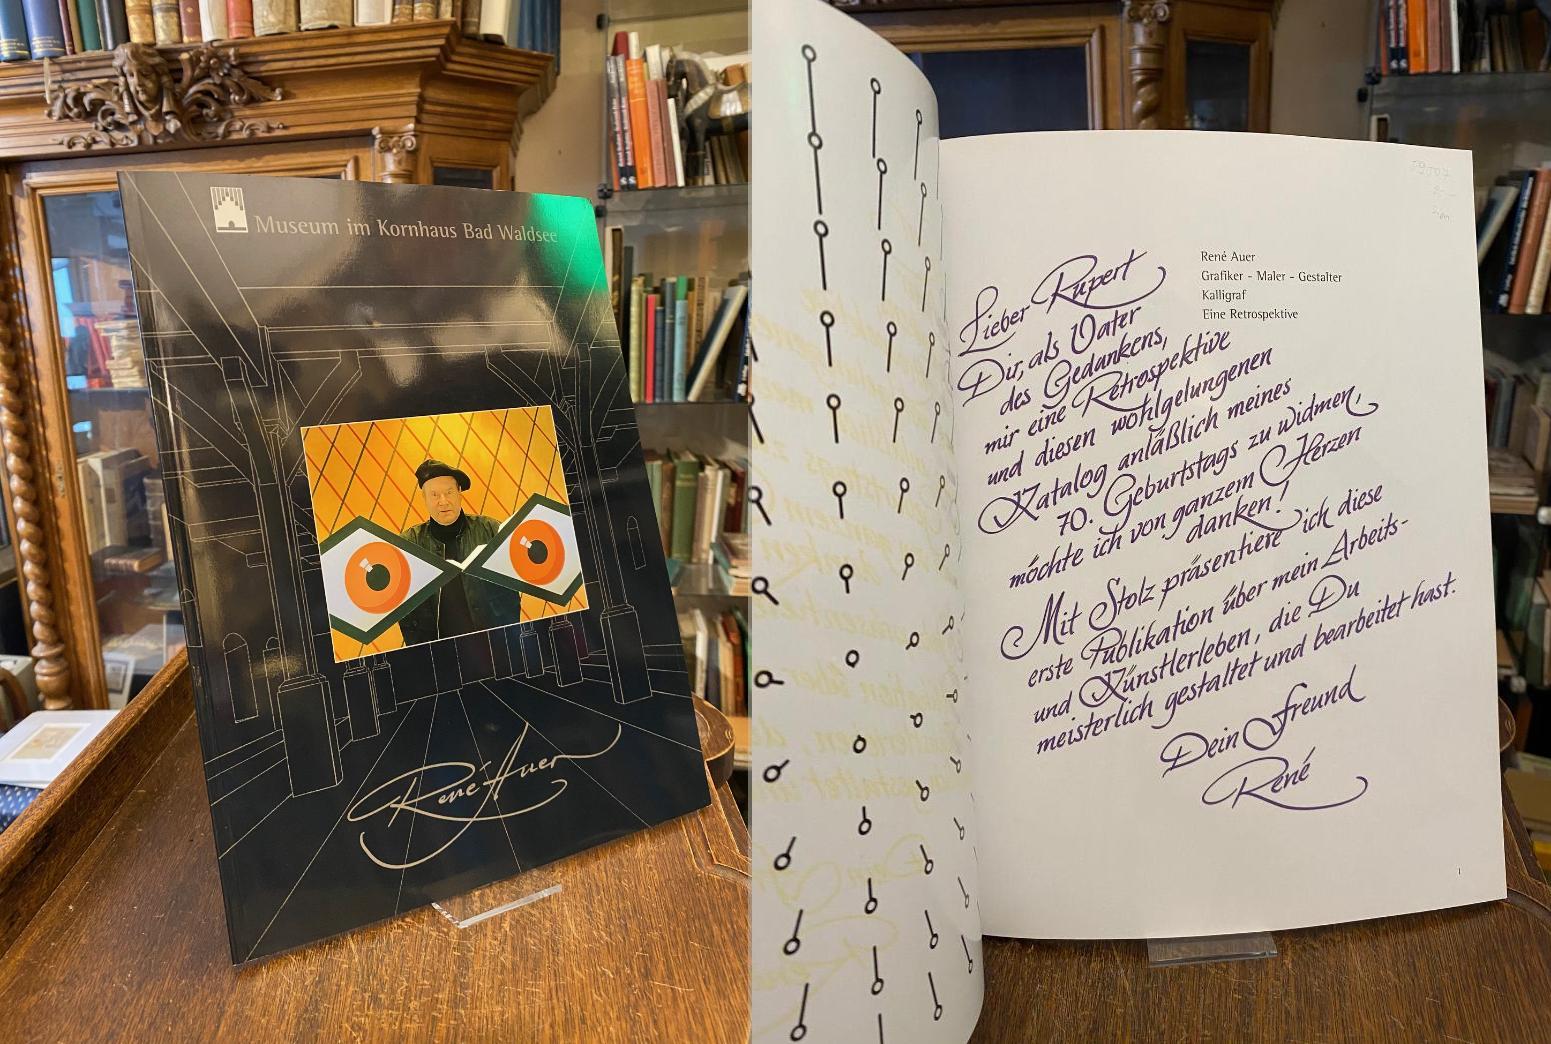 Museum im Kornhaus Bad Waldsee
René Auer
René Auer
Grafiker - Maler - Gestalter
Kalligraf
Eine Retrospektive
Lieber Rupert
Dir, als Vater
des Gedankens,
mir eine Retrospektive
und diesen wohlgelungenen
Katalog anläßlich meines
70. Geburtstags zu widmen,
möchte ich von ganzem Herzen
danken!
Mit Stolz präsentiere ich diese
erste Publikation über mein Arbeits-
und Künstlerleben, die Du
meisterlich gestaltet und bearbeitet hast.
Dein Freund
René
1